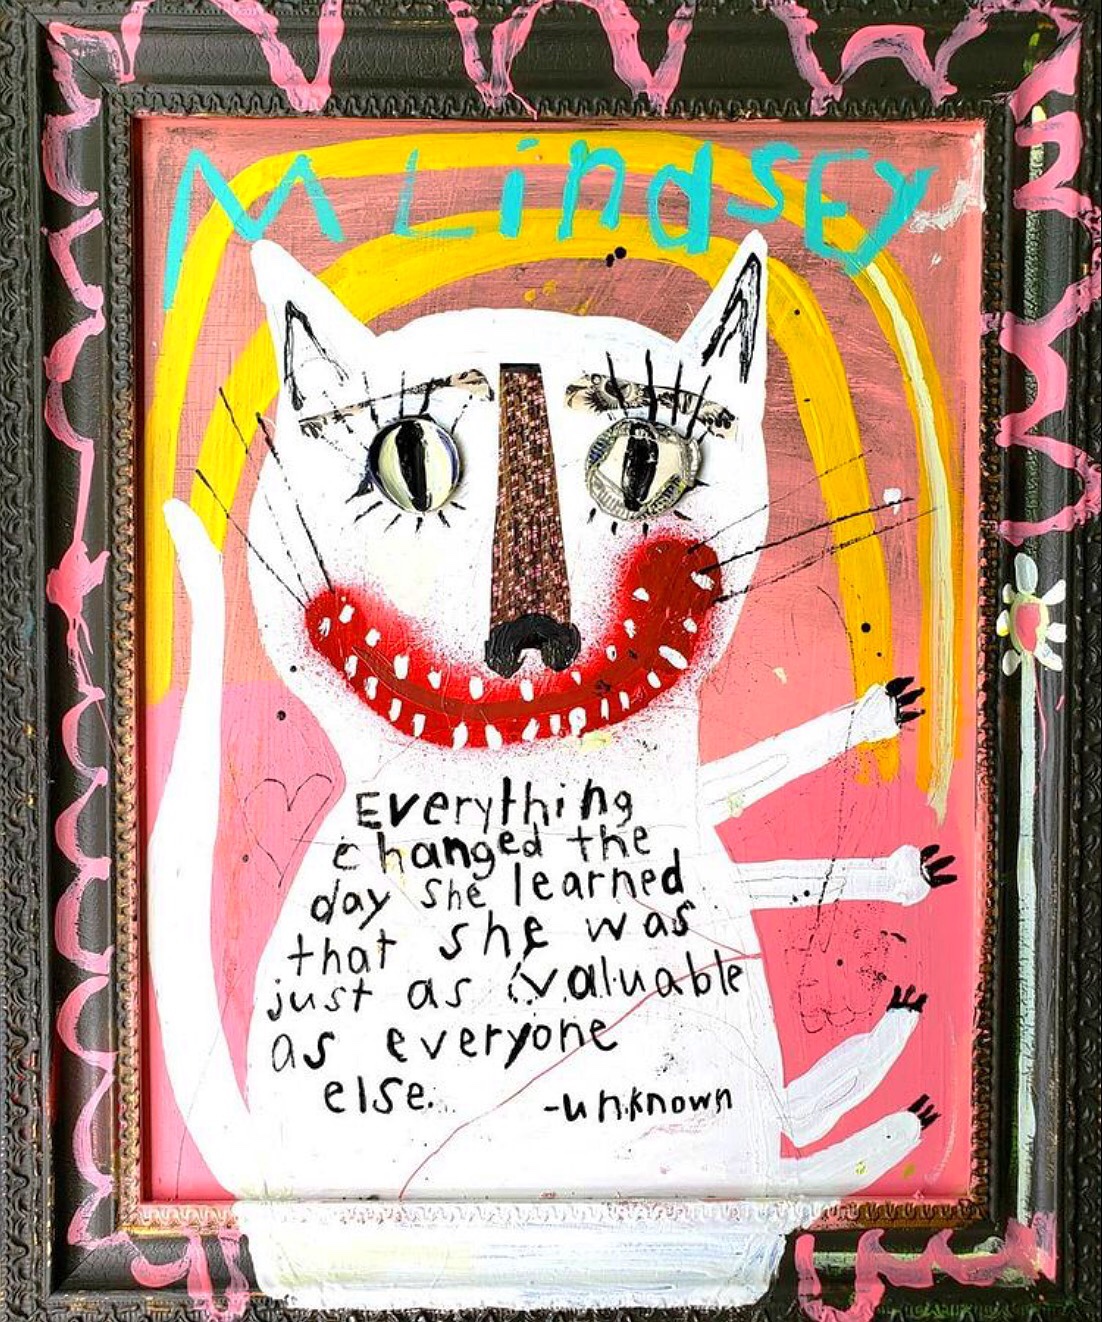 M LindsEy
Everything
changed the
day she learned
that she was
just as valuable
as everyone
else.
-unknown